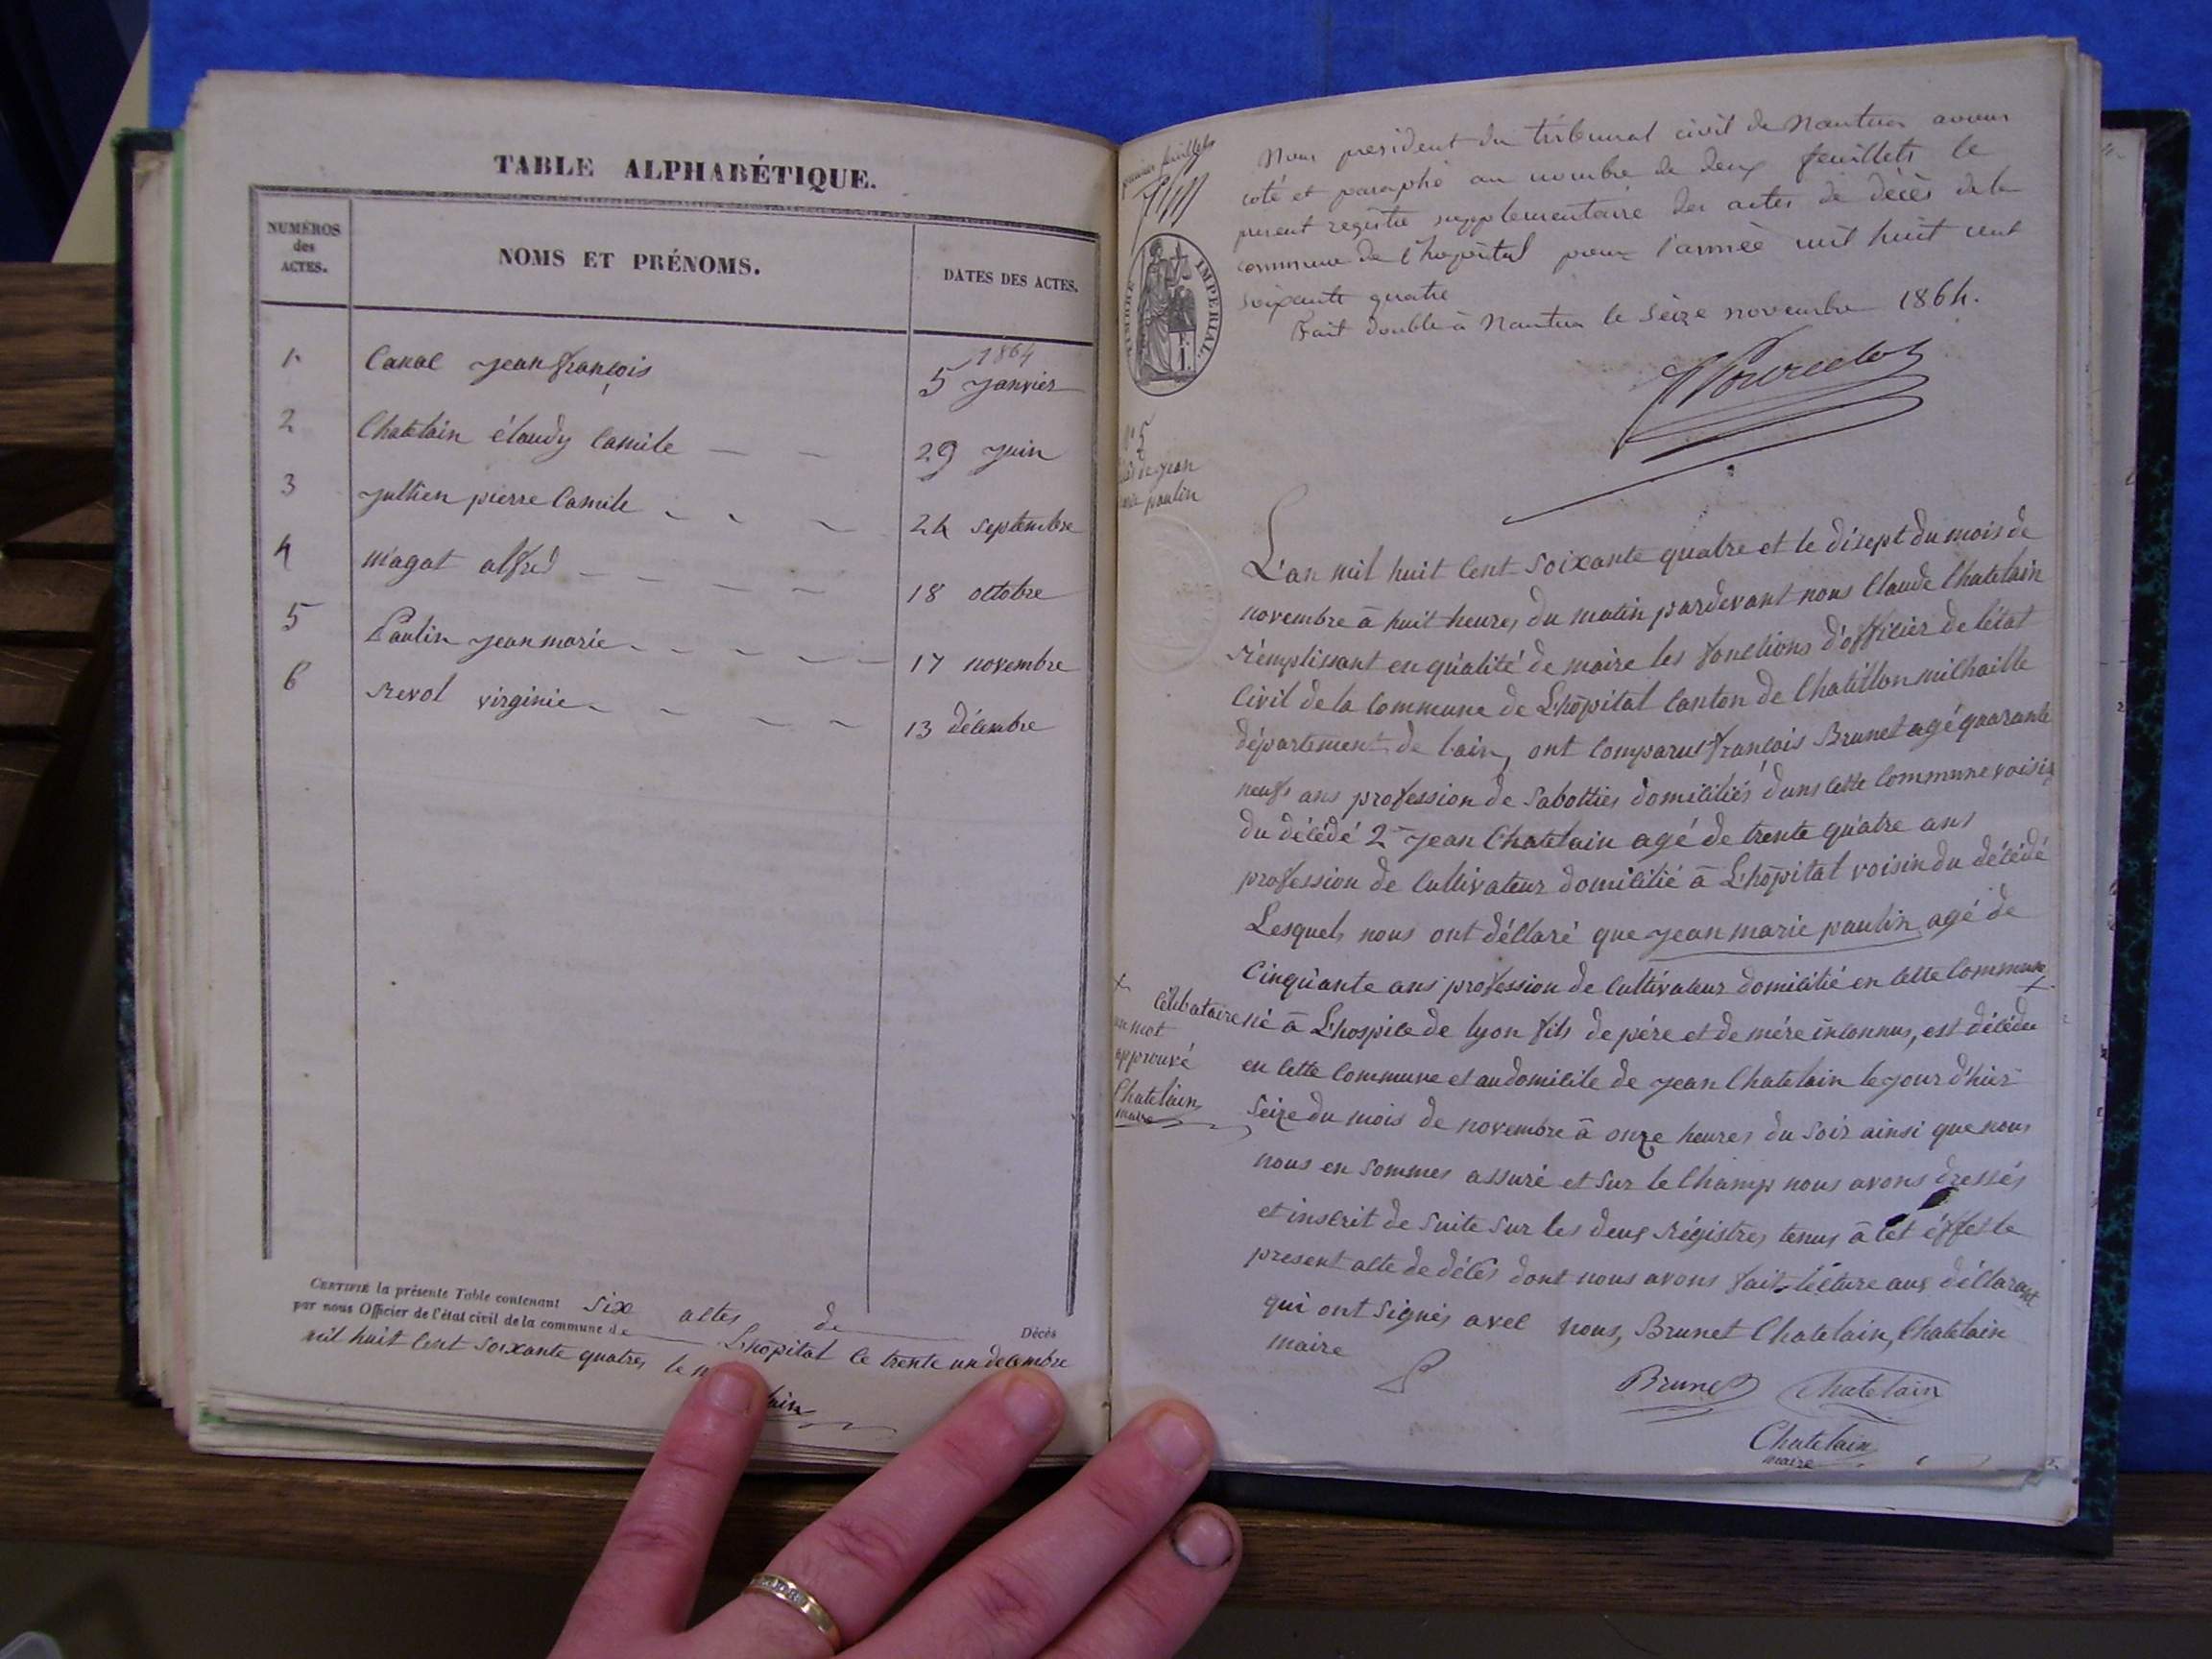 TABLE ALPHABÉTIQUE.
NUMÉROS
des
ACTES.
NOMS ET PRÉNOMS.
DATES DES ACTES.
1864
1. Canal jean françois 5 janvier
2 Chatelain élaudy Camile 29 juin
3 jullien pierre Camile 24 septembre
4 magat alfred 18 octobre
5 Paulin jean marie 17 novembre
6 revol virginie 13 décembre
CERTIFIÉ la présente Table contenant six actes de Décès
par nous Officier de l'état civil de la commune de L'hôpital le trente un décembre
mil huit cent soixante quatres le
premier feuillet
Nous président du tribunal civil de Nantua avons
coté et paraphé au nombre de deux feuillets le
present registre supplementaire des actes de décès de la
commune de l'hopital pour l'année mil huit cent
soixante quatre
Fait double à Nantua le seize novembre 1864.
TIMBRE IMPERIAL
N° 5
de jean
marie paulin
L'an mil huit Cent Soixante quatre et le disept du mois de
novembre à huit heures du matin pardevant nous Claude Chatelain
rémplissant en qualité de maire les fonctions d'officier de l'état
Civil de la Commune de L'hôpital Canton de Chatillon michaille
département de l'ain, ont Comparus françois Brunet agé quarante
neufs ans profession de Sabottier domiciliés dans cette Commune voisin
du décédé 2 jean Chatelain agé de trente quatre ans
profession de Cultivateur domicilié à L'hôpital voisin du décédé
Lesquels nous ont déclaré que jean marie paulin agé de
Cinquante ans profession de Cultivateur domicilié en cette Commune
né à L'hospice de lyon fils de père et de mère inconnus, est décédé
en cette Commune et au domicile de jean Chatelain le jour d'hier
Seize du mois de novembre à onze heures du Soir ainsi que nous
nous en Sommes assuré et Sur le Champ nous avons dressés
et inscrit de Suite Sur les deux régistres tenus à cet éffet le
present acte de décès dont nous avons fait lecture aux déclarant
qui ont signés avec nous, Brunet Chatelain, Chatelain
maire
× Célibataire
un mot
approuvé
Chatelain
maire
Brunet Chatelain
Chatelain
maire